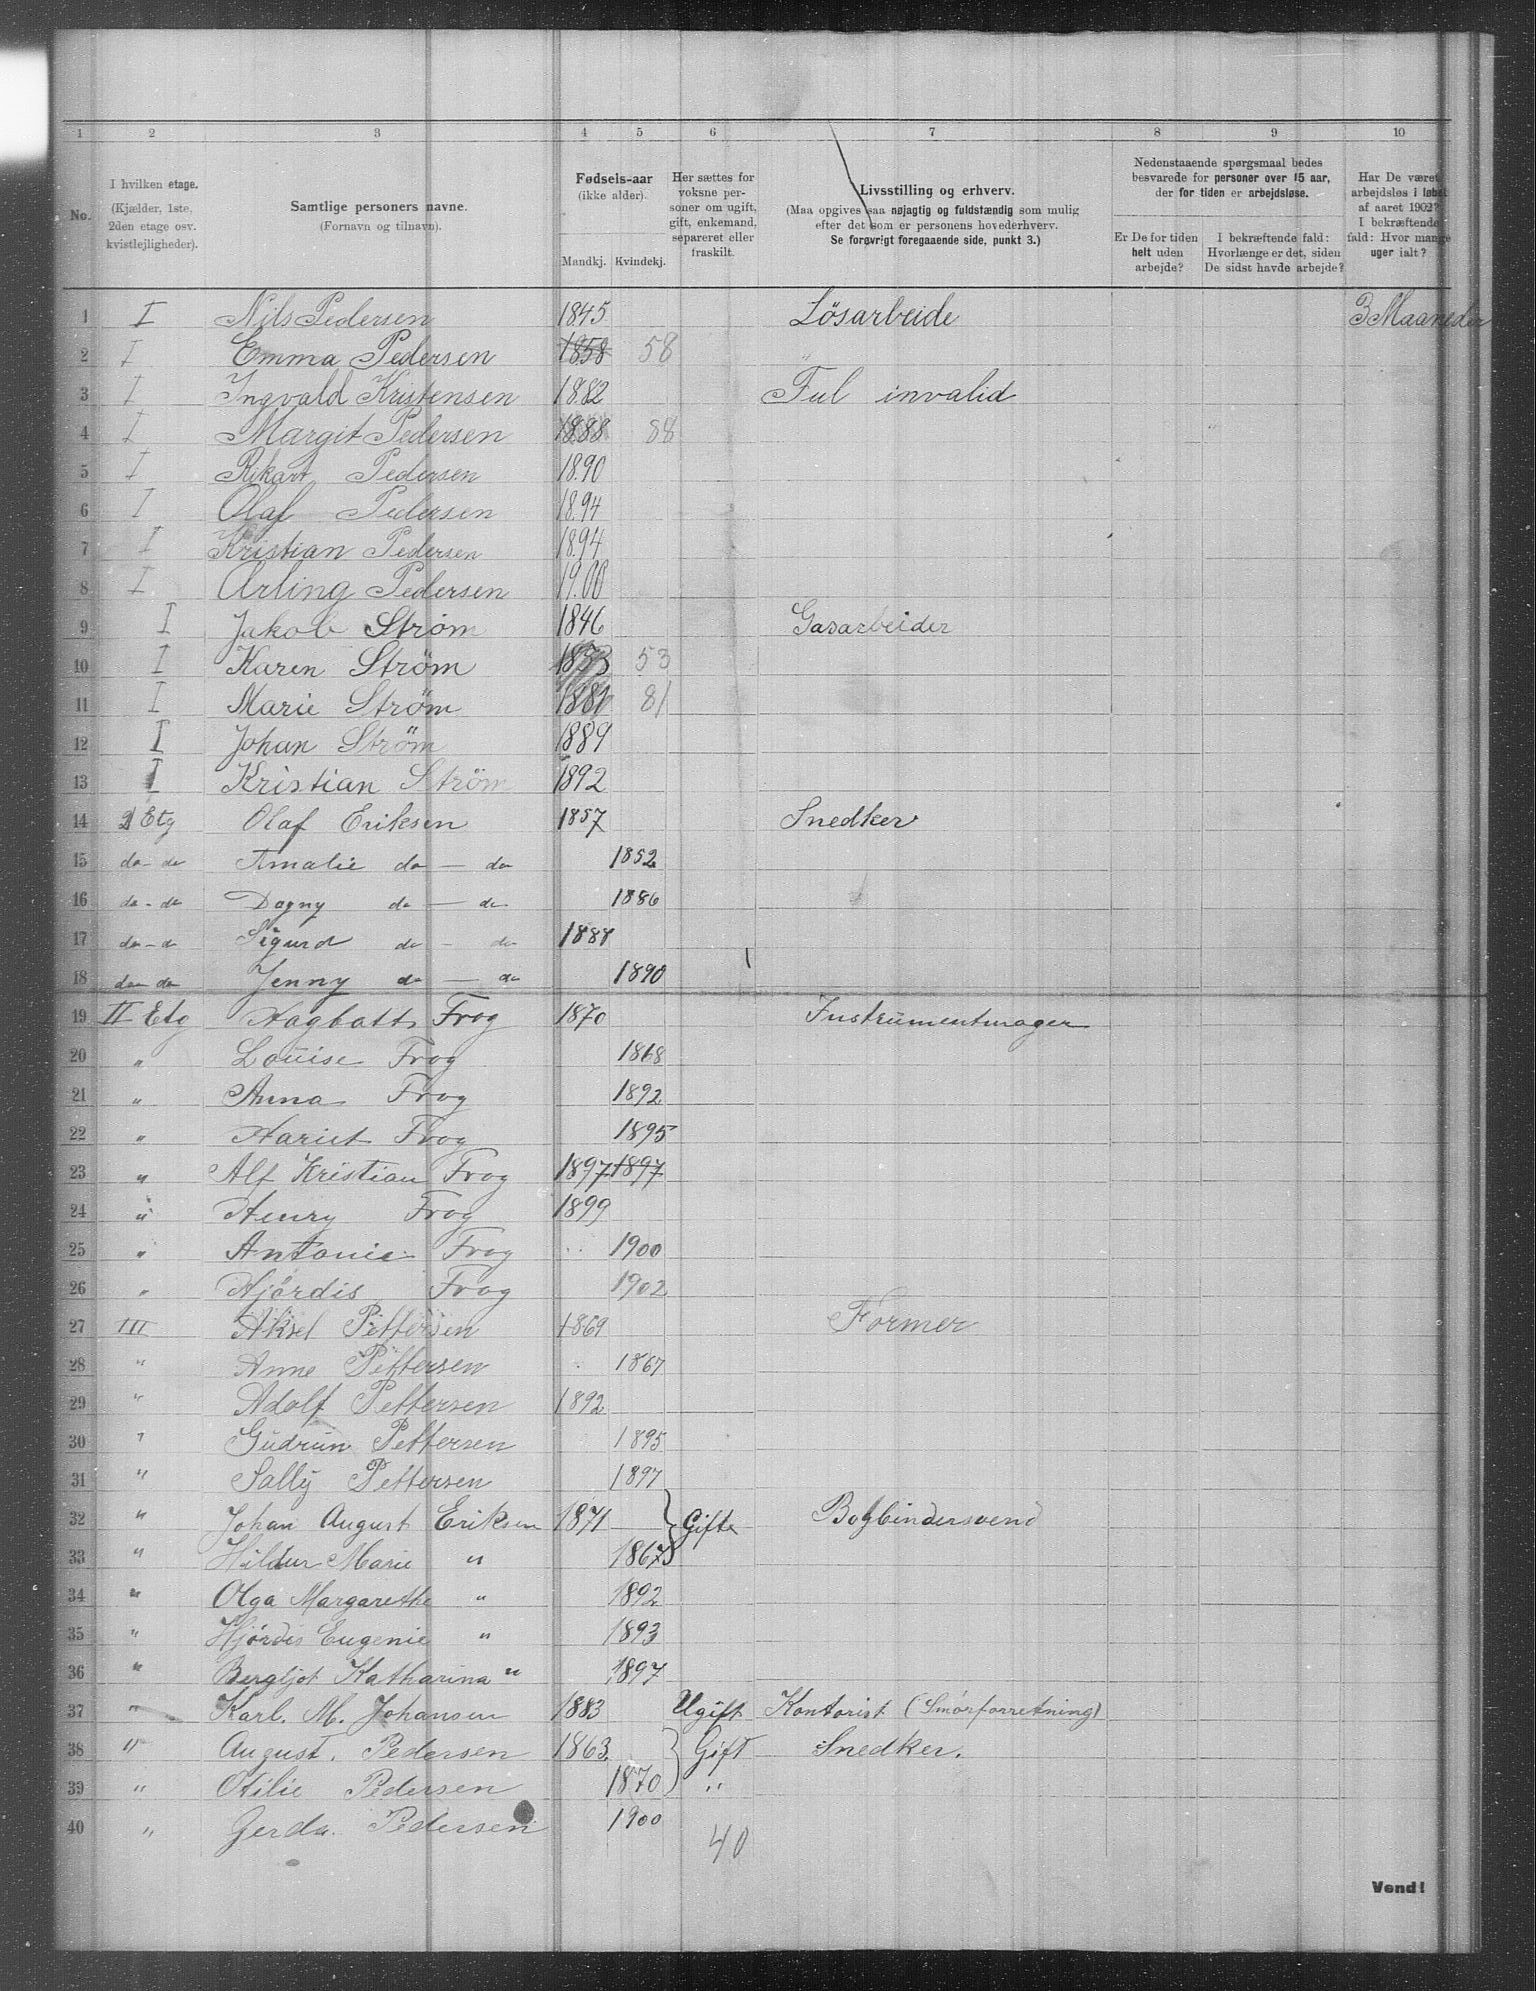 1 2 3 4 5 6 7 8 9 10
No.
I hvilken etage.
(Kjælder, 1ste,
2den etage osv.
kvistlejligheder).
Samtlige personers navne.
(Fornavn og tilnavn).
Fødsels-aar
(ikke alder).
Mandkj. Kvindekj.
Her sættes for
voksne per-
soner om ugift,
gift, enkemand,
separeret eller
fraskilt.
Livsstilling og erhverv.
(Maa opgives saa nøjagtig og fuldstændig som mulig
efter det som er personens hovederhverv.
Se forøvrigt foregaaende side, punkt 3.)
Nedenstaaende spørgsmaal bedes
besvarede for personer over 15 aar,
der for tiden er arbejdsløse.
Er De for tiden
helt uden
arbejde?
I bekræftende fald:
Hvorlænge er det, siden
De sidst havde arbejde?
Har De været
arbejdsløs i løbet
af aaret 1902?
I bekræftende
fald: Hvor mange
uger ialt?
1 I Nils Pedersen 1845 Lösarbeide 3 Maaneder
2 I Emma Pedersen 1858 58
3 I Ingvald Kristensen 1882 Ful invalid
4 I Margit Pedersen 1888 88
5 I Rikart Pedersen 1890
6 I Olaf Pedersen 1894
7 I Kristian Pedersen 1894
8 I Arling Pedersen 1900
9 I Jakob Strøm 1846 Gasarbeider
10 I Karen Ström 1853 53
11 I Marie Ström 1881 81
12 I Johan Ström 1889
13 I Kristian Ström 1892
14 2 Etg Olaf Eriksen 1857 Snedker
15 do - do Amalie do — do 1852
16 do - do Dagny do — do 1886
17 do - do Sigurd do - do 1888
18 do - do Jenny do — do 1890
19 II Etg Hagbatt Frog 1870 Instrumentmager
20 " Louise Frog 1868
21 " Anna Frog 1892
22 " Hariet Frog 1895
23 " Alf Kristian Frog 1897 1897
24 " Henry Frog 1899
25 " Antonie Frog 1900
26 " Hjördis Frog 1902
27 III Aksel Pettersen 1869 Former
28 " Anne Pettersen 1867
29 " Adolf Pettersen 1892
30 " Gudrun Pettersen 1895
31 " Sally Pettersen 1897
32 " Johan August Eriksen 1871 Gifte Bogbindersvend
33 " Hildur Marie " 1867
34 " Olga Margarethe " 1892
35 " Hjördis Eugenie " 1893
36 " Bergljot Katharina " 1897
37 " Karl. M. Johansen 1883 Ugift Kontorist (Smörforretning)
38 " August. Pedersen 1863. Gift Snedker.
39 " Otilie Pedersen 1870 "
40 " Gerda. Pedersen 1900
40
Vend!